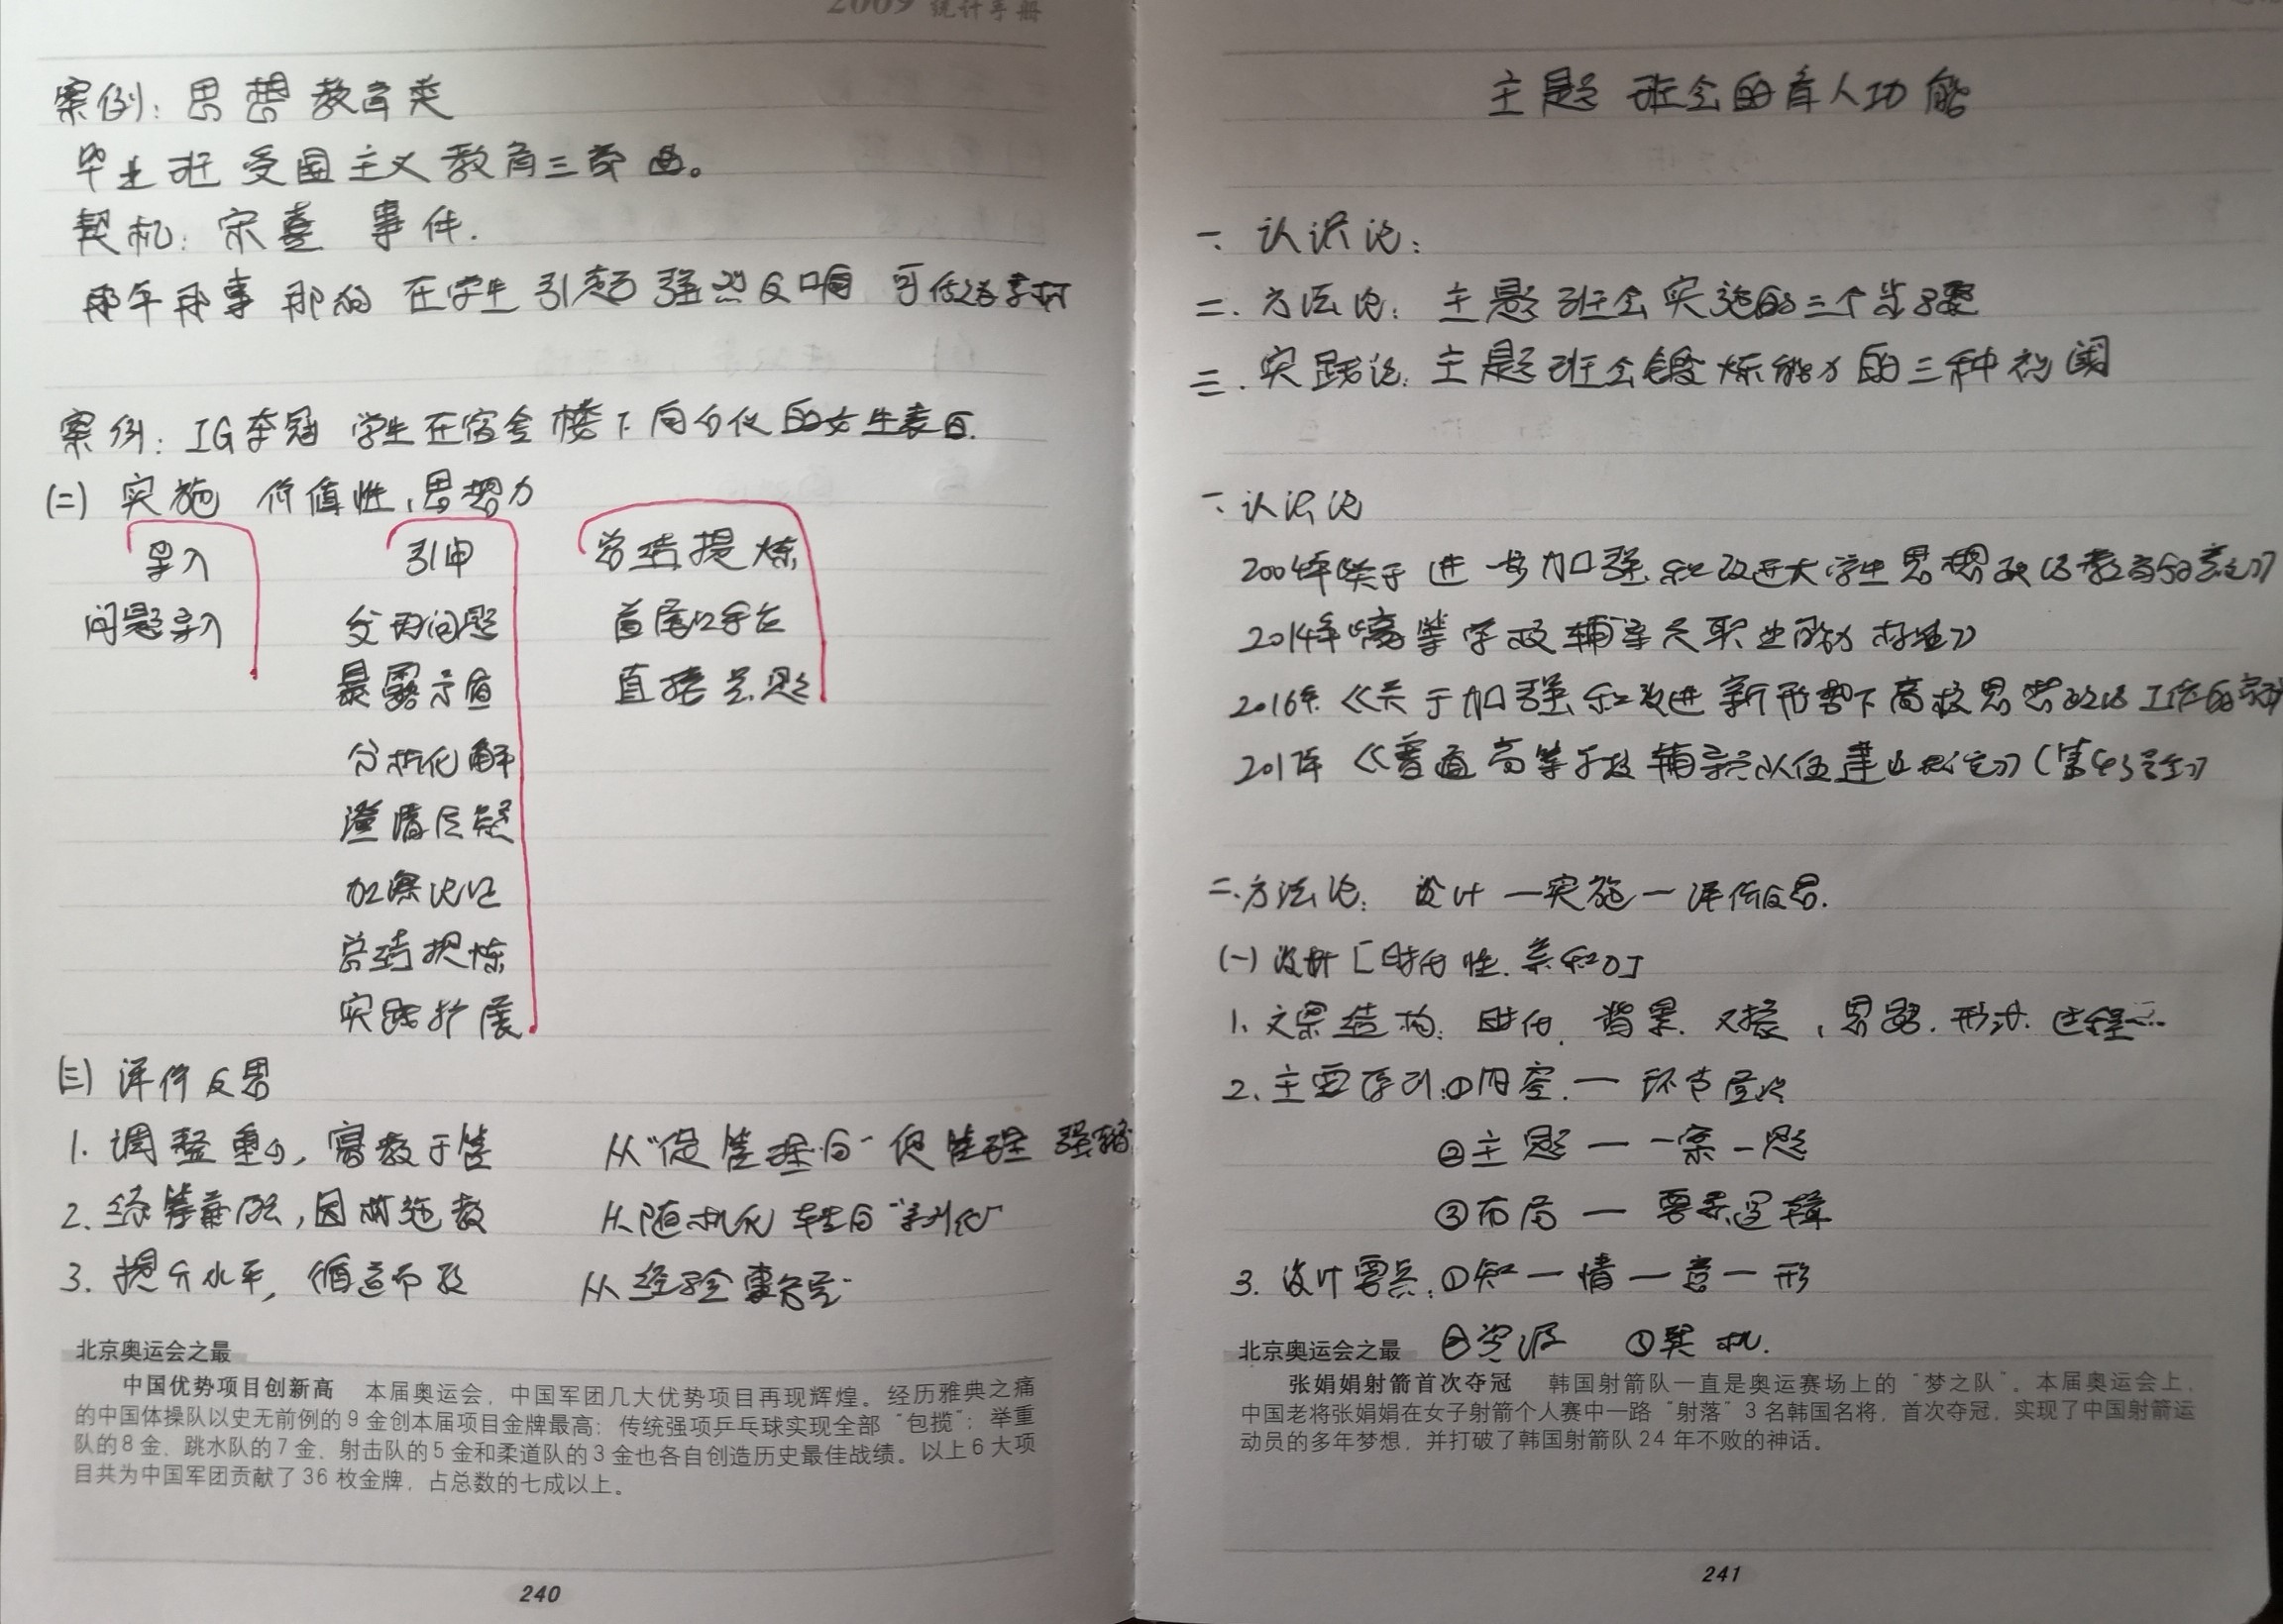 2009 统计手册
案例：思想教育类
毕业班爱国主义教育三部曲。
契机：宋喜 事件.
那年那事那 在学生引起强烈反响 可作为素材
案例：IG夺冠 学生在宿舍楼下向 的女生表白.
(二) 实施 价值性、思想力
导入 引申 总结提炼
问题导入 问题 首尾呼应
暴露矛盾 直接点题
分析化解
澄清质疑
加深认识
总结提炼
实践扩展
(三) 评价反思
1. 调整重心, 寓教于管 从"促管理"向"促管理
2. 统筹兼顾, 因材施教 从随机化转向"系列化"
3. 提升水平, 循道而 从经验
北京奥运会之最
中国优势项目创新高 本届奥运会，中国军团几大优势项目再现辉煌。经历雅典之痛
的中国体操队以史无前例的9金创本届项目金牌最高；传统强项乒乓球实现全部“包揽”；举重
队的8金、跳水队的7金、射击队的5金和柔道队的3金也各自创造历史最佳战绩。以上6大项
目共为中国军团贡献了36枚金牌，占总数的七成以上。
240
主题班会的育人功能
一. 认识论：
二. 方法论：主题班会实施的三个步骤
三. 实践论：主题班会锻炼能力的三种
一. 认识论
2004年《关于进一步加强和改进大学生思想政治教育的意见》
2014年《高等学校辅导员职业能力标准》
2016年《关于加强和改进新形势下高校思想政治工作的
2017年《普通高等学校辅导员队伍建设规定》(第43号令)
二. 方法论：设计—实施—评价反思.
(一) 设计[时代性.亲和力]
1. 文案结构：时代、背景、对接、思路、形式、过程…
2. 主要 ：①时空—环节层次
②主题—一案一题
③布局—要素逻辑
3. 设计要点：①知—情—意—形
②资源 ③契机.
北京奥运会之最
张娟娟射箭首次夺冠 韩国射箭队一直是奥运赛场上的“梦之队”。本届奥运会上，
中国老将张娟娟在女子射箭个人赛中一路“射落”3名韩国名将，首次夺冠，实现了中国射箭运
动员的多年梦想，并打破了韩国射箭队24年不败的神话。
241